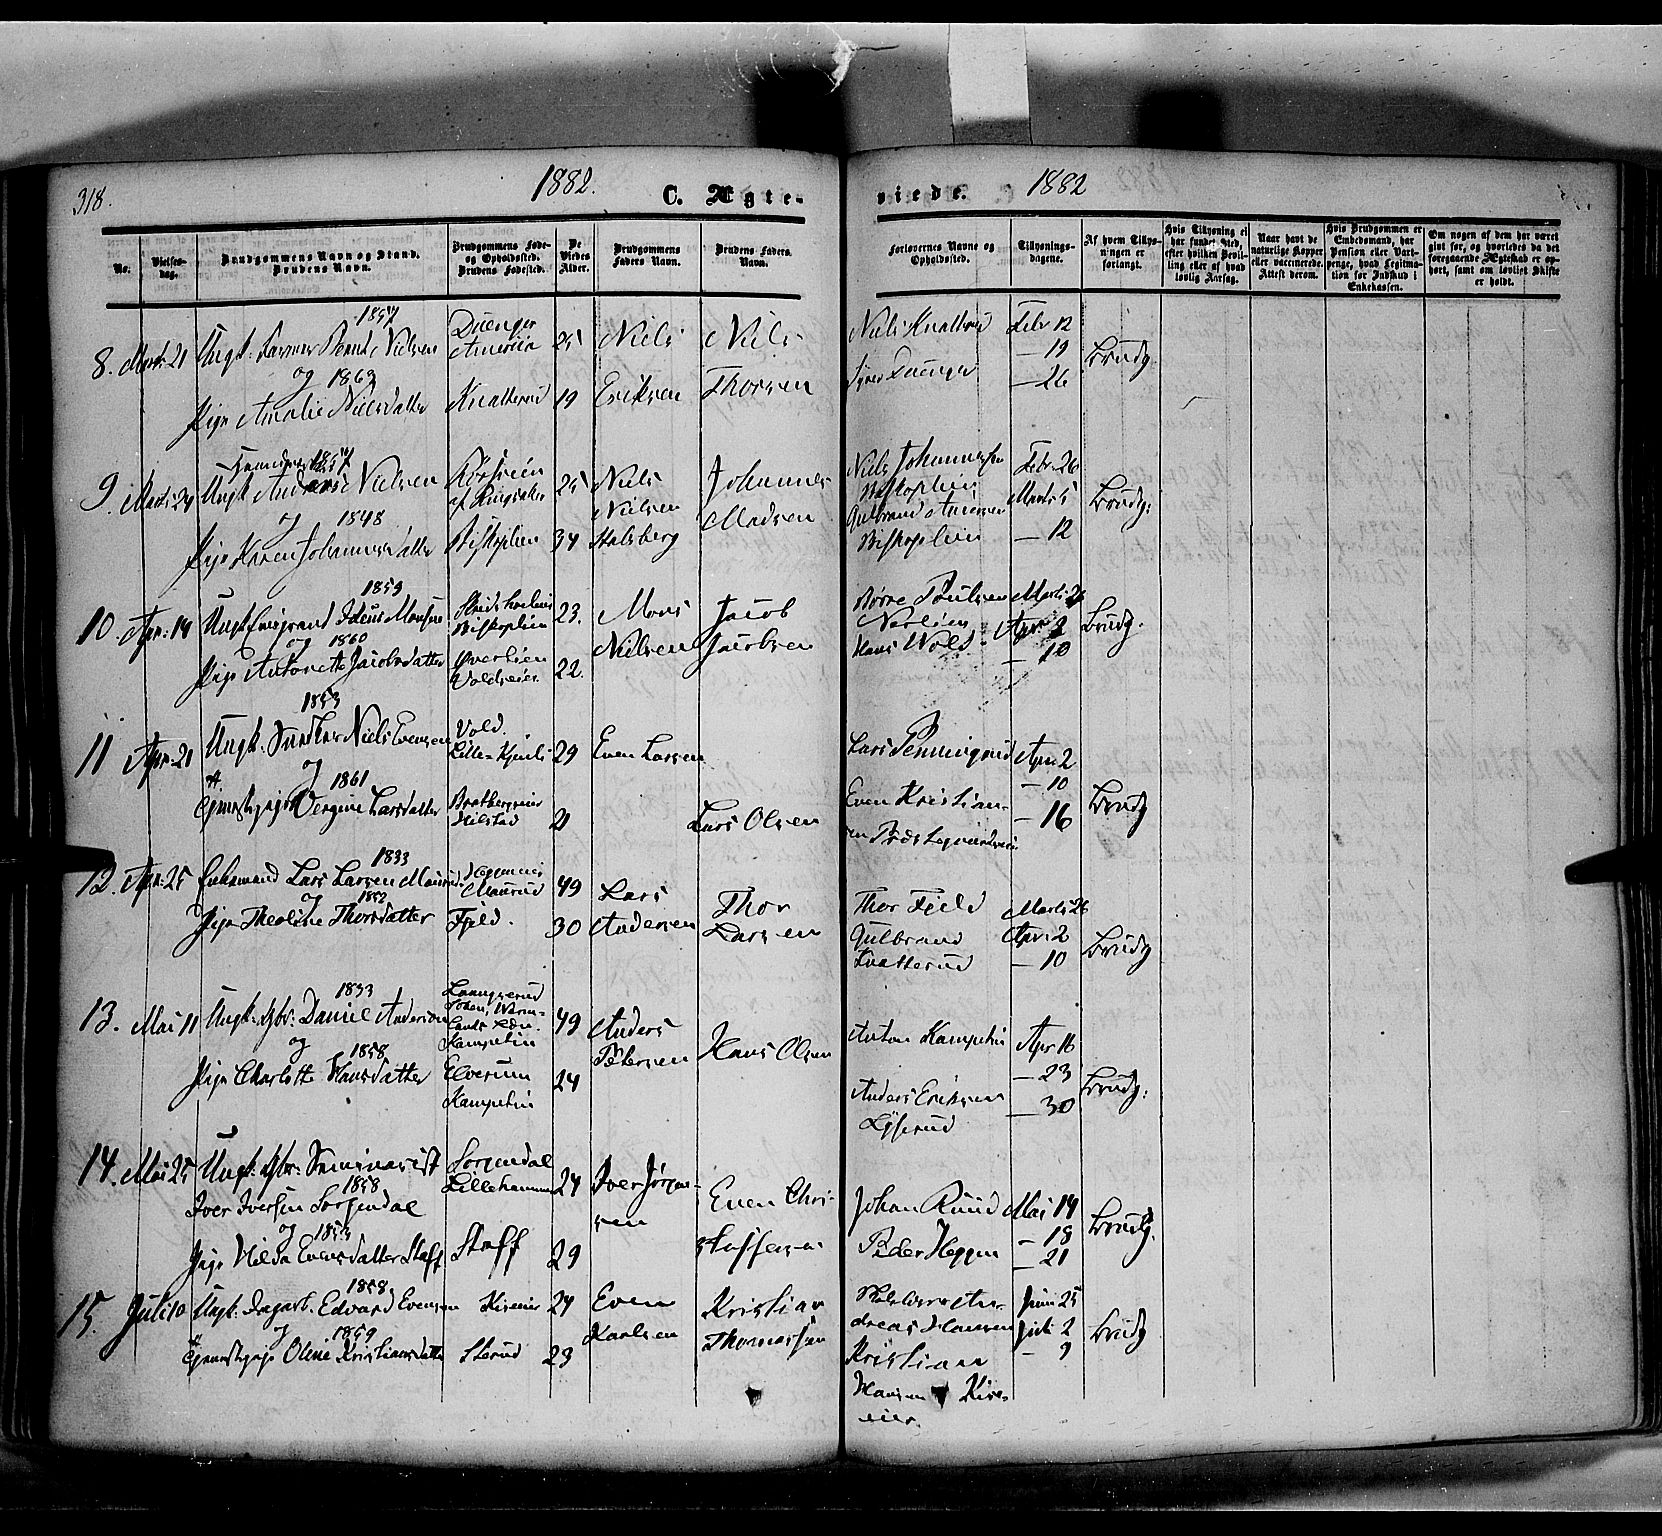 318.
1882.
C. Ægte-
viede.
1882
No.
Vielses-
dag.
Brudgommens Navn og Stand.
Brudens Navn.
Brudgommens Føde-
og Opholdssted.
Brudens Fødested.
De
Viedes
Alder.
Brudgommens
Faders Navn.
Brudens Faders
Navn.
Forlovernes Navne og
Opholdssted.
Tillysnings-
dagene.
Af hvem Tillys-
ningen er
forlangt.
Hvis Tillysning ei
har fundet Sted,
efter hvilken Bevil-
ling eller af hvad
lovlig Aarsag.
Naar havt de
naturlige Kopper
eller vaccinerede.
Attest derom.
Hvis Brudgommen er
Embedsmand, har
Pension eller Vart-
penge, hvad Legitima-
tion for Indskud i
Enkekassen.
Om nogen af dem har været
gift før, og hvorledes da det
foregaaende Ægteskab er op-
hørt, samt om lovligt Skifte
er holdt.
8. Marts 21
1857
Ungk: Bernt Nielsen
og 1863
Pige Amalie Nielsdatter
Duenger
Amerika
Knatterud
25
19
Niels
Eriksen
Niels
Thorsen
Niels Knatterud
Duenger
Febr 12
— 19
— 26
Brudg.
9. Marts 24
1857
Ungk Anders Nielsen
og 1848
Pige Karen Johannesdatter
af Ringsaker
Biskoplien
25
34
Niels
Nielsen
Stalsberg
Johannes
Madsen
Niels Johannessen
Biskoplien
Gulbrand Andersen
Biskoplien
Febr. 26
Marts 5
— 12
Brudg:
10. Apr: 14
1859
Ungk Emigrand Ideus Monsen
og 1860
Pige Antonette Jacobsdatter
Biskoplien
Øverlien
Voldseier
23.
22.
Mons
Nielsen
Jacob
Jacobsen
Børre Poulsen
Nerlien
Hans Vold
Marts 26
Apr. 2
— 10
Brudg.
11 Apr. 21
1853
Ungk. Snedker Niels Evensen
og
1861
Tjenestepige Vergine Larsdatter
Vold.
Lille-Kjøuls
Bratbergseier
Hilstad
29
21
Even Larsen
Lars Olsen
Lars Penningrud
Even Kristian-
sen
Apr. 2
— 10
— 16
Brudg
12. Apr: 25
1833
Enkemand Lars Larsen Maurud
og 1852
Pige Theoline Thorsdatter
Maurud
Fjeld.
49
30
Lars
Andersen
Thor
Larsen
Thor Fjeld
Gulbrand
Knatterud
Marts 26
Apr. 2
— 10
Brudg
13. Mai 11
1833
Ungk: Gbr: Daniel Anderson
og
1858
Pige Charlotte Hansdatter
Laangserud
Soken, Værm-
lands Læn.
Kampetin
Elverum
Kampetin
49
24
Anders
Petersen
Hans Olsen
Anton Kampetin
Anders Eriksen
Lyserud
Apr 16
— 23
— 30
Brudg:
14. Mai 25
Ungk: Gbr: Seminarist
1858
Iver Iversen Sorgendal
og 1853
Pige Hilda Evensdatter Staff
Sorgendal
Lillehammer
Staff
24
29
Iver Jørgen-
sen
Even Chri-
stoffersen
Johan Ruud
Peder Heggen
Mai 14
— 18
— 21
Brudg.
15. Juli 10
1858
Ungk: Dagarb. Edvard Evensen
og 1859
Tjenestepige Oline Kristiansdatter
Kiseeier
Sterud
24
23
Even
Karlsen
Kristian
Thomassen
Skolelærer An-
dreas Hansen
Kristian
Hansen Kise-
eier.
Juni 25
Juli 2
— 9
Brudg